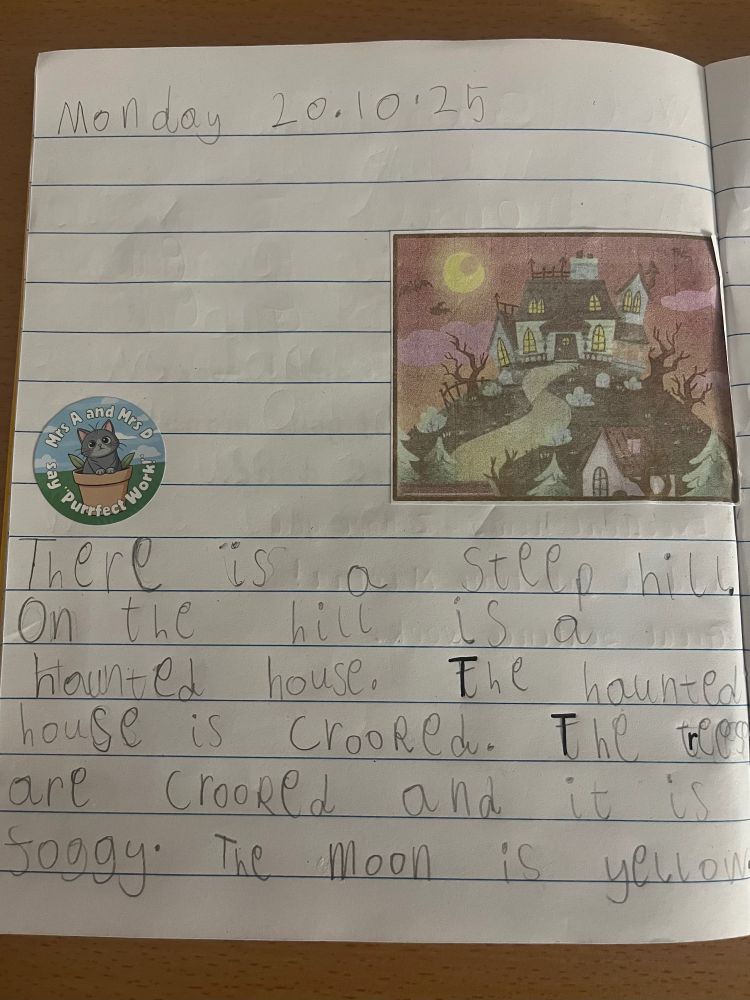 Monday 20.10.25
Mrs A and Mrs D
say 'Purrfect Work!'
There is a steep hill.
On the hill is a
haunted house. The haunted
house is crooked. The trees
are crooked and it is
foggy. The moon is yellow.